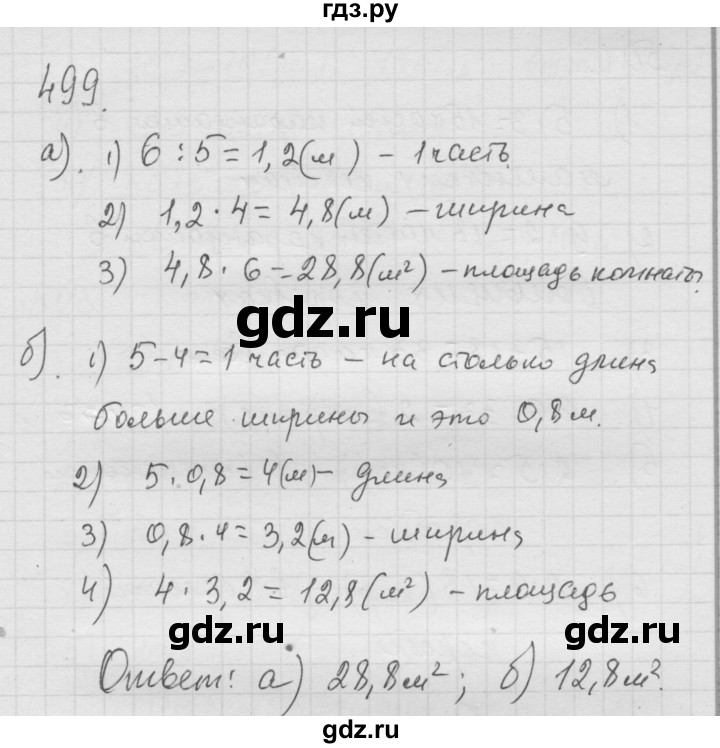 гдз.ру
499.
а). 1) 6 : 5 = 1,2 (м) – 1 часть.
2) 1,2 · 4 = 4,8 (м) – ширина
3) 4,8 · 6 = 28,8 (м²) – площадь комнаты.
gdz.ru
б). 1) 5 – 4 = 1 часть – на столько длина
больше ширины и это 0,8 м.
2) 5 · 0,8 = 4 (м) – длина
3) 0,8 · 4 = 3,2 (м) – ширина
4) 4 · 3,2 = 12,8 (м²) – площадь
gdz.ru gdz.ru
Ответ: а) 28,8 м²; б) 12,8 м².
gdz.ru